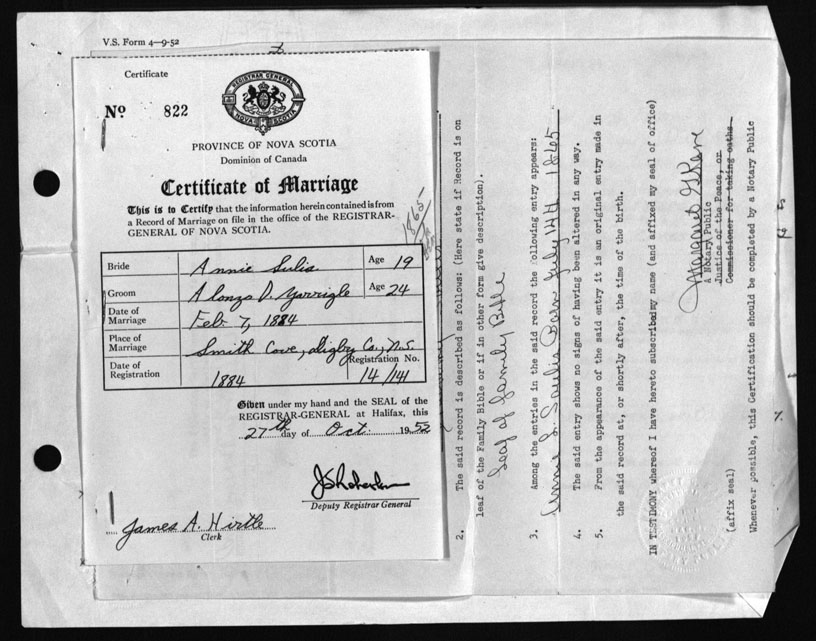 V.S. Form 4—9-52
Certificate
No 822
REGISTRAR GENERAL
NOVA SCOTIA
PROVINCE OF NOVA SCOTIA
Dominion of Canada
Certificate of Marriage
This is to Certify that the information herein contained is from
a Record of Marriage on file in the office of the REGISTRAR-
GENERAL OF NOVA SCOTIA.
1865-
Bride Annie Sulis Age 19
Groom Alonzo D. Age 24
Date of Marriage Feb 7, 1884
Place of Marriage Smith Cove, Digby Co., N.S.
Date of Registration 1884 Registration No. 14/141
Given under my hand and the SEAL of the
REGISTRAR-GENERAL at Halifax, this
27th day of Oct. 1952
Deputy Registrar General
James A. Hirtle
Clerk
2. The said record is described as follows: (Here state if Record is on
leaf of the Family Bible or if in other form give description).
Leaf of Family Bible
3. Among the entries in the said record the following entry appears:
Annie J. Saulis Born July 1244 1865
4. The said entry shows no signs of having been altered in any way.
5. From the appearance of the said entry it is an original entry made in
the said record at, or shortly after, the time of the birth.
IN TESTIMONY whereof I have hereto subscribed my name (and affixed my seal of office)
Margaret
A Notary Public
Justice of the Peace, or
Commissioner for taking oaths
(affix seal)
Whenever possible, this Certification should be completed by a Notary Public